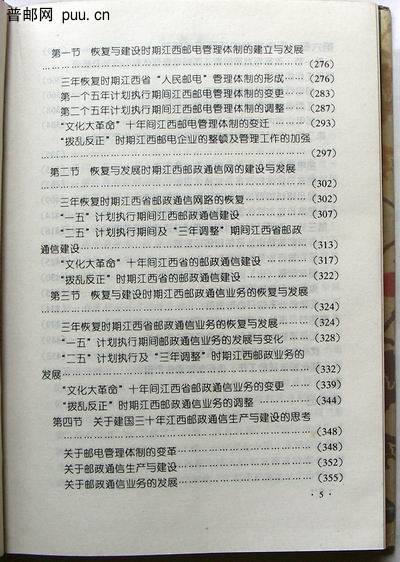 普邮网 puu.cn
第一节 恢复与建设时期江西邮电管理体制的建立与发展
……(276)
三年恢复时期江西省“人民邮电”管理体制的形成……(276)
第一个五年计划执行期间江西邮电管理体制的变更……(283)
第二个五年计划执行期间江西邮电管理体制的调整……(287)
“文化大革命”十年间江西邮电管理体制的变迁……(293)
“拨乱反正”时期江西邮电企业的整顿及管理工作的加强
……(297)
第二节 恢复与发展时期江西邮政通信网的建设与发展
……(302)
三年恢复时期江西省邮政通信网路的恢复……(302)
“一五”计划执行期间江西邮政通信建设……(307)
“二五”计划执行期间及“三年调整”期间江西省邮政
通信建设……(313)
“文化大革命”十年间江西省的邮政通信建设……(317)
“拨乱反正”时期江西省的邮政通信建设……(322)
第三节 恢复与建设时期江西邮政通信业务的恢复与发展
……(324)
三年恢复时期江西省邮政通信业务的恢复与发展……(324)
“一五”计划执行期间邮政通信业务的发展与变化……(328)
“二五”计划执行及“三年调整”时期江西邮政业务的
发展……(332)
“文化大革命”十年间江西省邮政通信业务的变更……(339)
“拨乱反正”时期江西邮政通信业务的调整……(344)
第四节 关于建国三十年江西邮政通信生产与建设的思考
……(348)
关于邮电管理体制的变革……(348)
关于邮政通信生产与建设……(352)
关于邮政通信业务的发展……(355)
·5·